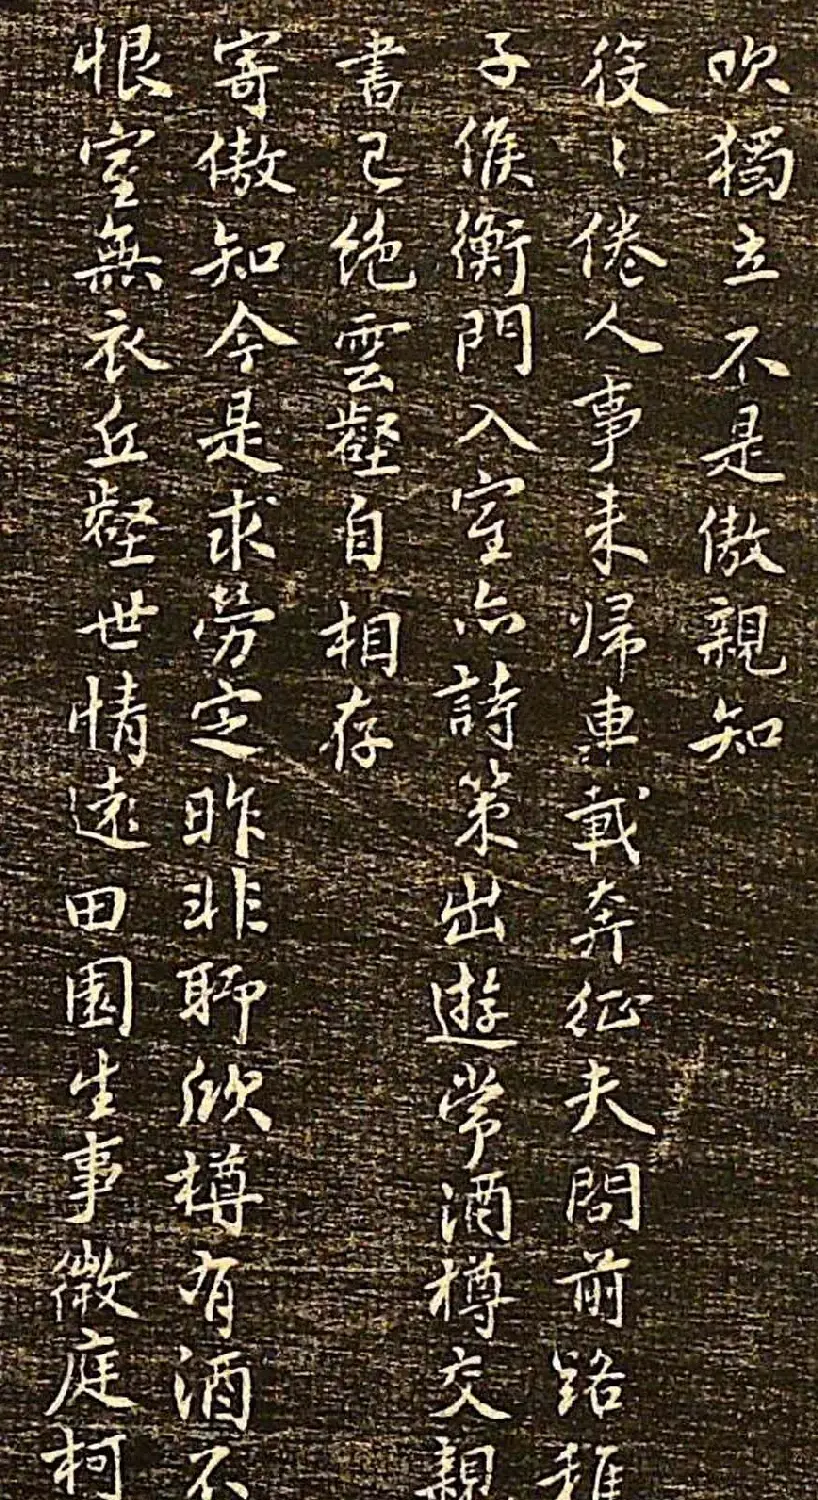 吹獨立不是傲親知
役〻倦人事来歸車載奔征夫問前路稚
子候衡門入室亦詩策出遊常酒樽交親
書已絶雲壑自相存
寄傲知今是求勞定昨非聊欣樽有酒不
恨室無衣丘壑世情遠田園生事微庭柯